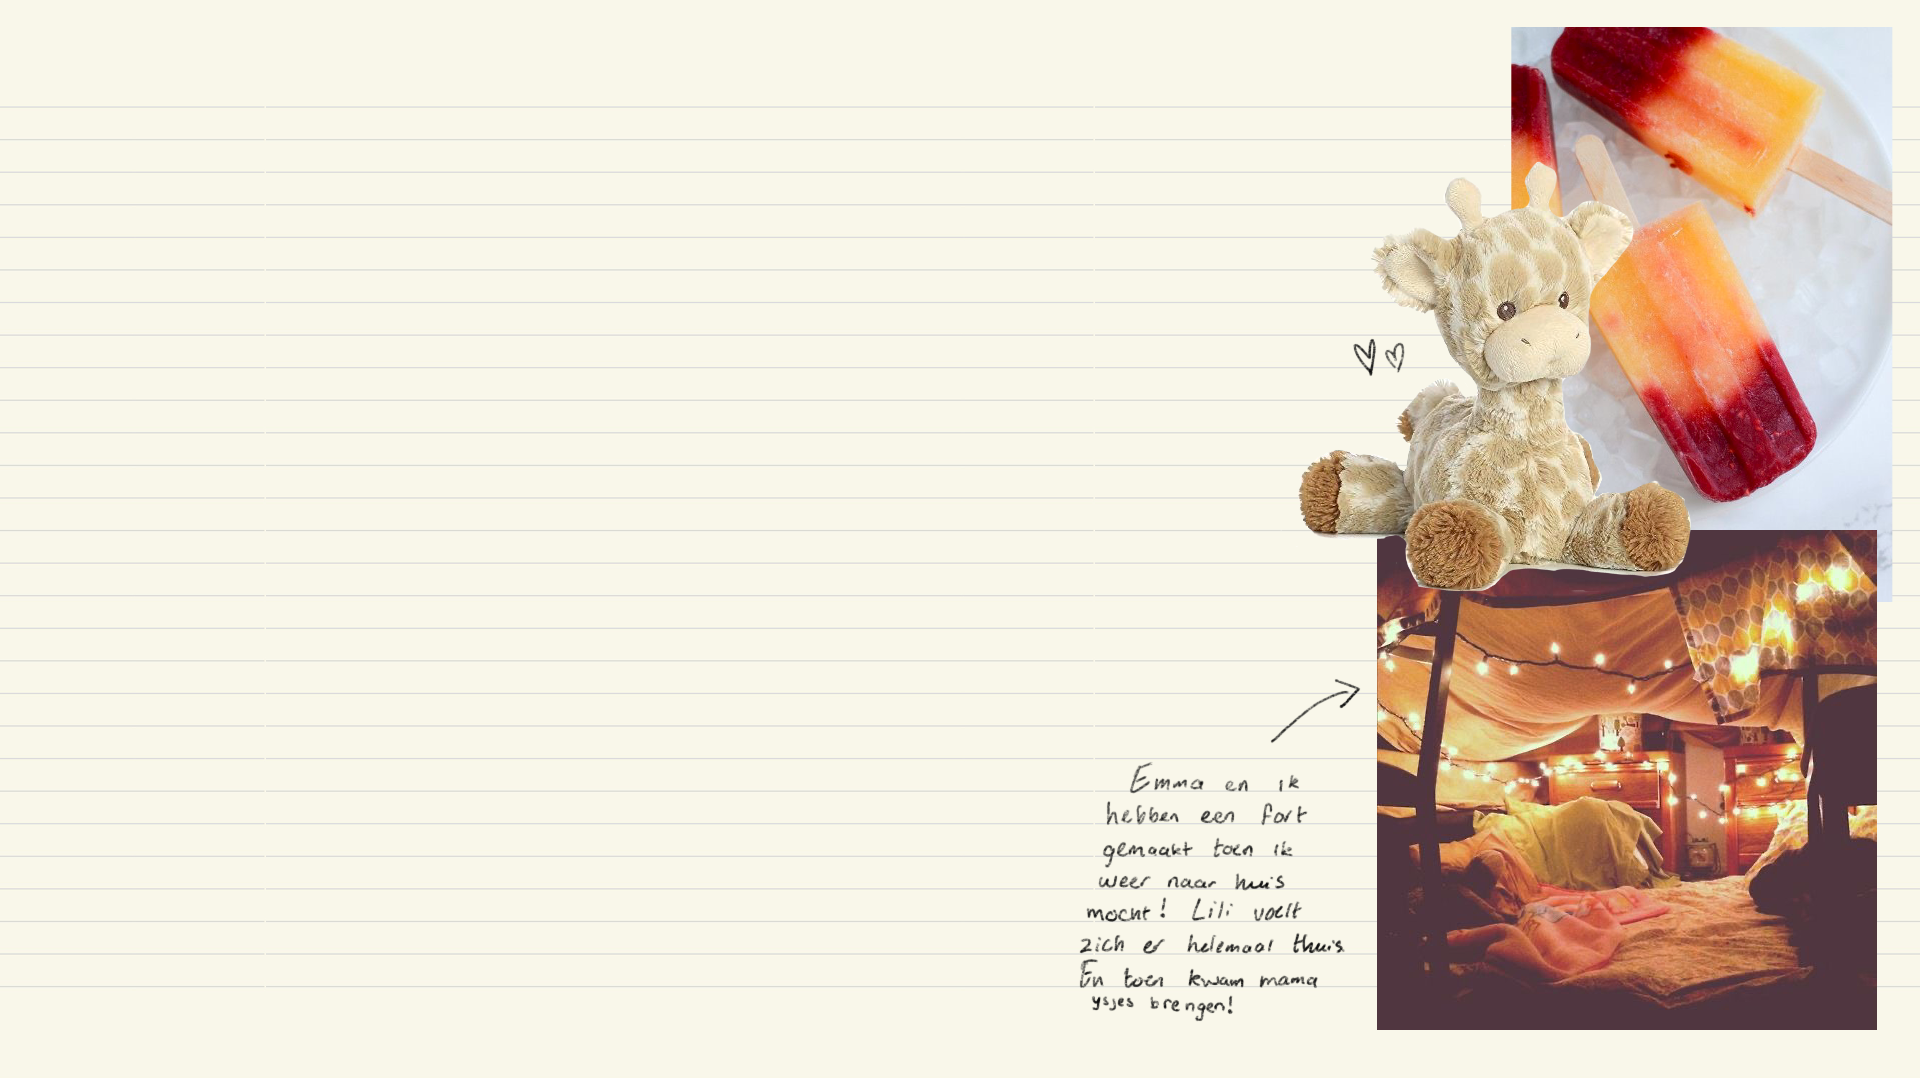 Emma en ik
hebben een fort
gemaakt toen ik
weer naar huis
mocht! Lili voelt
zich er helemaal thuis.
En toen kwam mama
ysjes brengen!